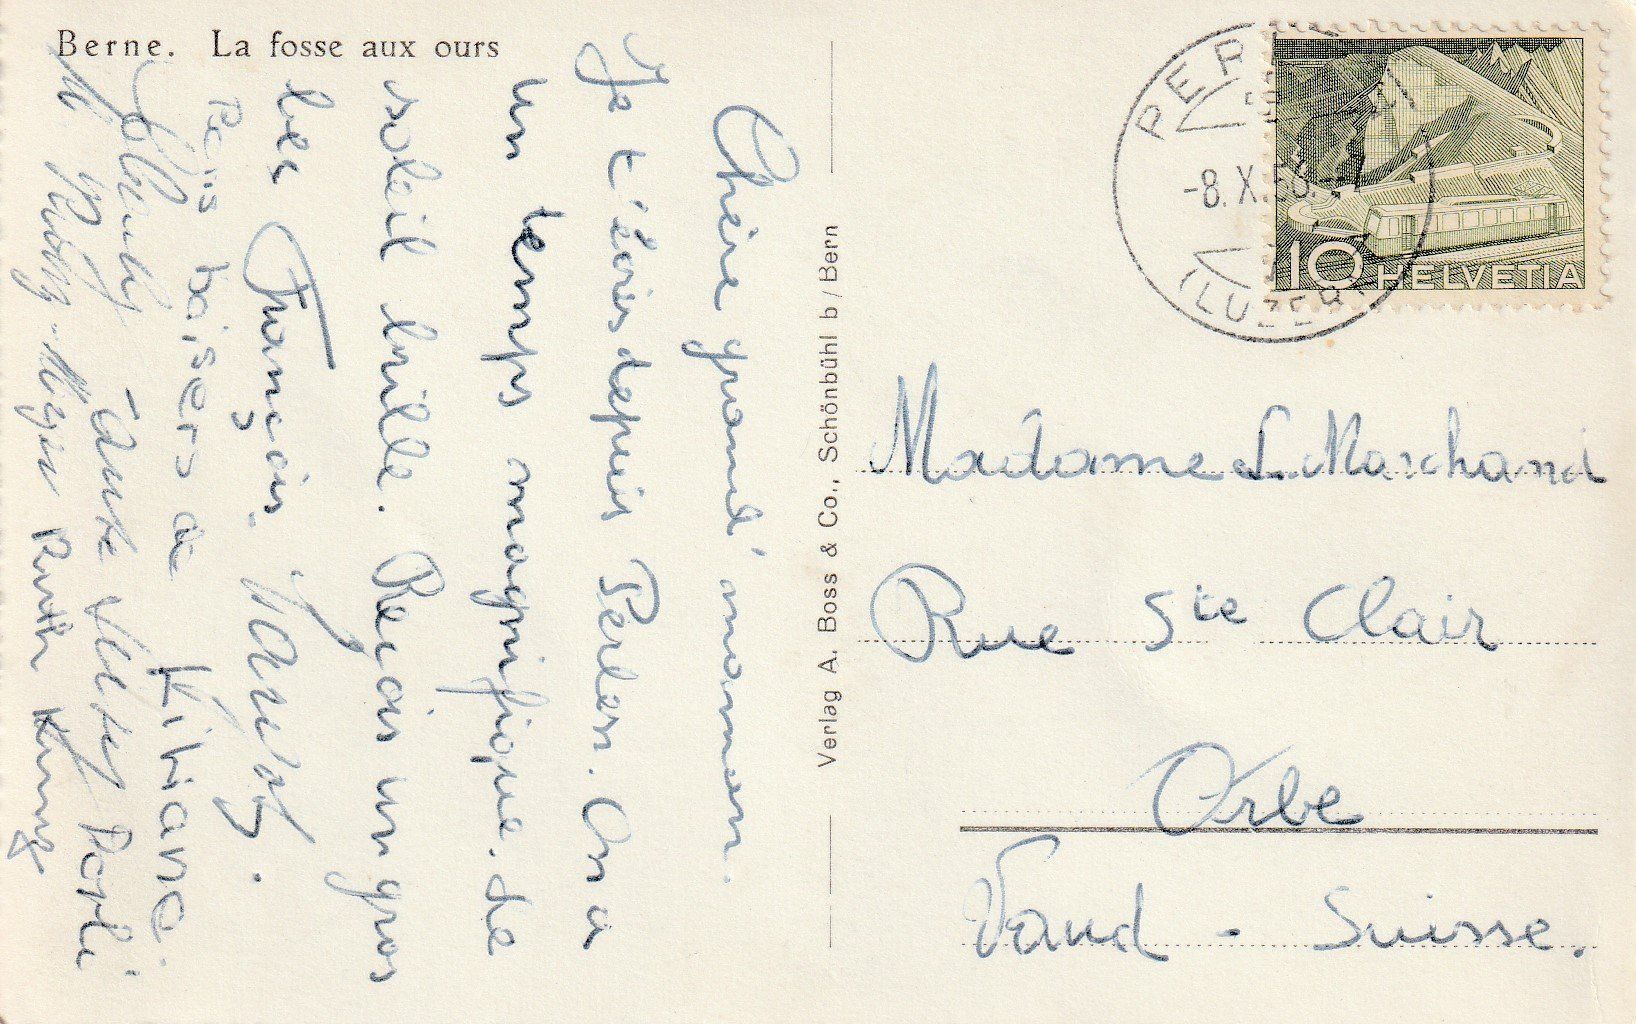 Berne. La fosse aux ours
Chère grand' maman.
Je t'écris depuis Perlen. On a
un temps magnifique. Le
soleil brille. Reçois un gros
bec François
Reçois baisers de Kikiane.
Tante
Ruth
Verlag A. Boss & Co., Schönbühl b/Bern
PERLEN
-8. X.
(LUZERN)
10 HELVETIA
Madame L. Marchand
Rue Ste Clair
Orbe
Vaud - Suisse.